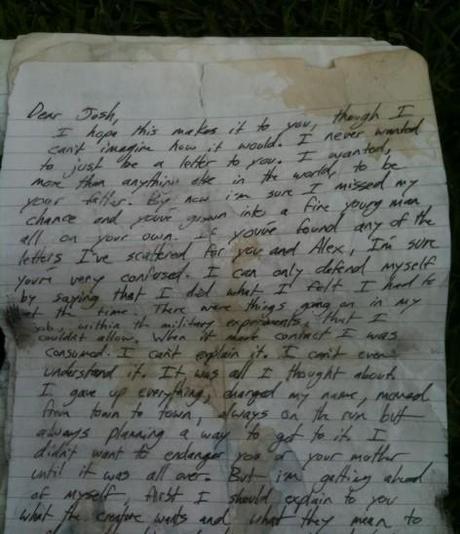 Dear Josh,
I hope this makes it to you, though I
can't imagine how it would. I never wanted
to just be a letter to you. I wanted,
more than anything else in the world, to be
your father. By now im sure I missed my
chance and you've grown into a fine young man
all on your own. If you've found any of the
letters I've scattered for you and Alex, I'm sure
you're very confused. I can only defend myself
by saying that I did what I felt I had to
at the time. There were things going on in my
job, within the military experiments, that I
couldnt allow. When it made contact I was
consumed. I can't explain it. I can't even
understand it. It was all I thought about.
I gave up everything, changed my name, moved
from town to town, always on the run but
always planning a way to get to it. I
didn't want to endanger you or your mother
until it was all over. But im getting ahead
of myself, first I should explain to you
what the creature wants and what they mean to